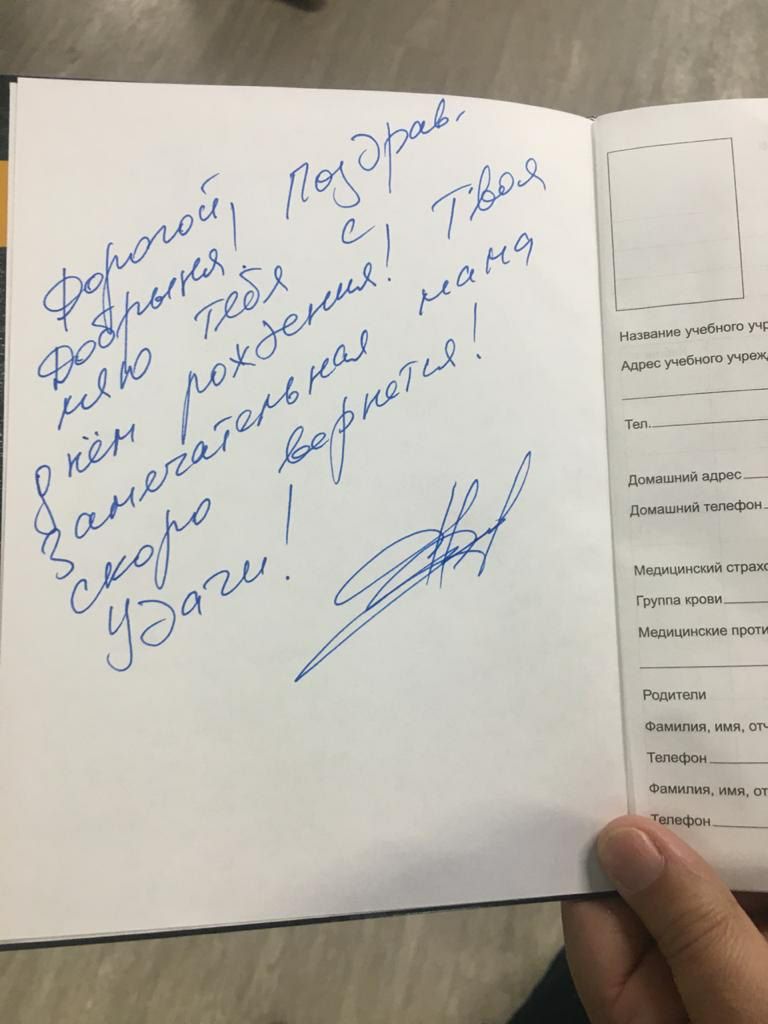 Дорогой
Добрыня! Поздрав-
ляю тебя с
днём рождения! Твоя
замечательная мама
скоро вернется!
Удачи!
Название учебного учр
Адрес учебного учрежд
Тел.
Домашний адрес
Домашний телефон
Медицинский страхо
Группа крови
Медицинские проти
Родители
Фамилия, имя, отч
Телефон
Фамилия, имя, от
Телефон